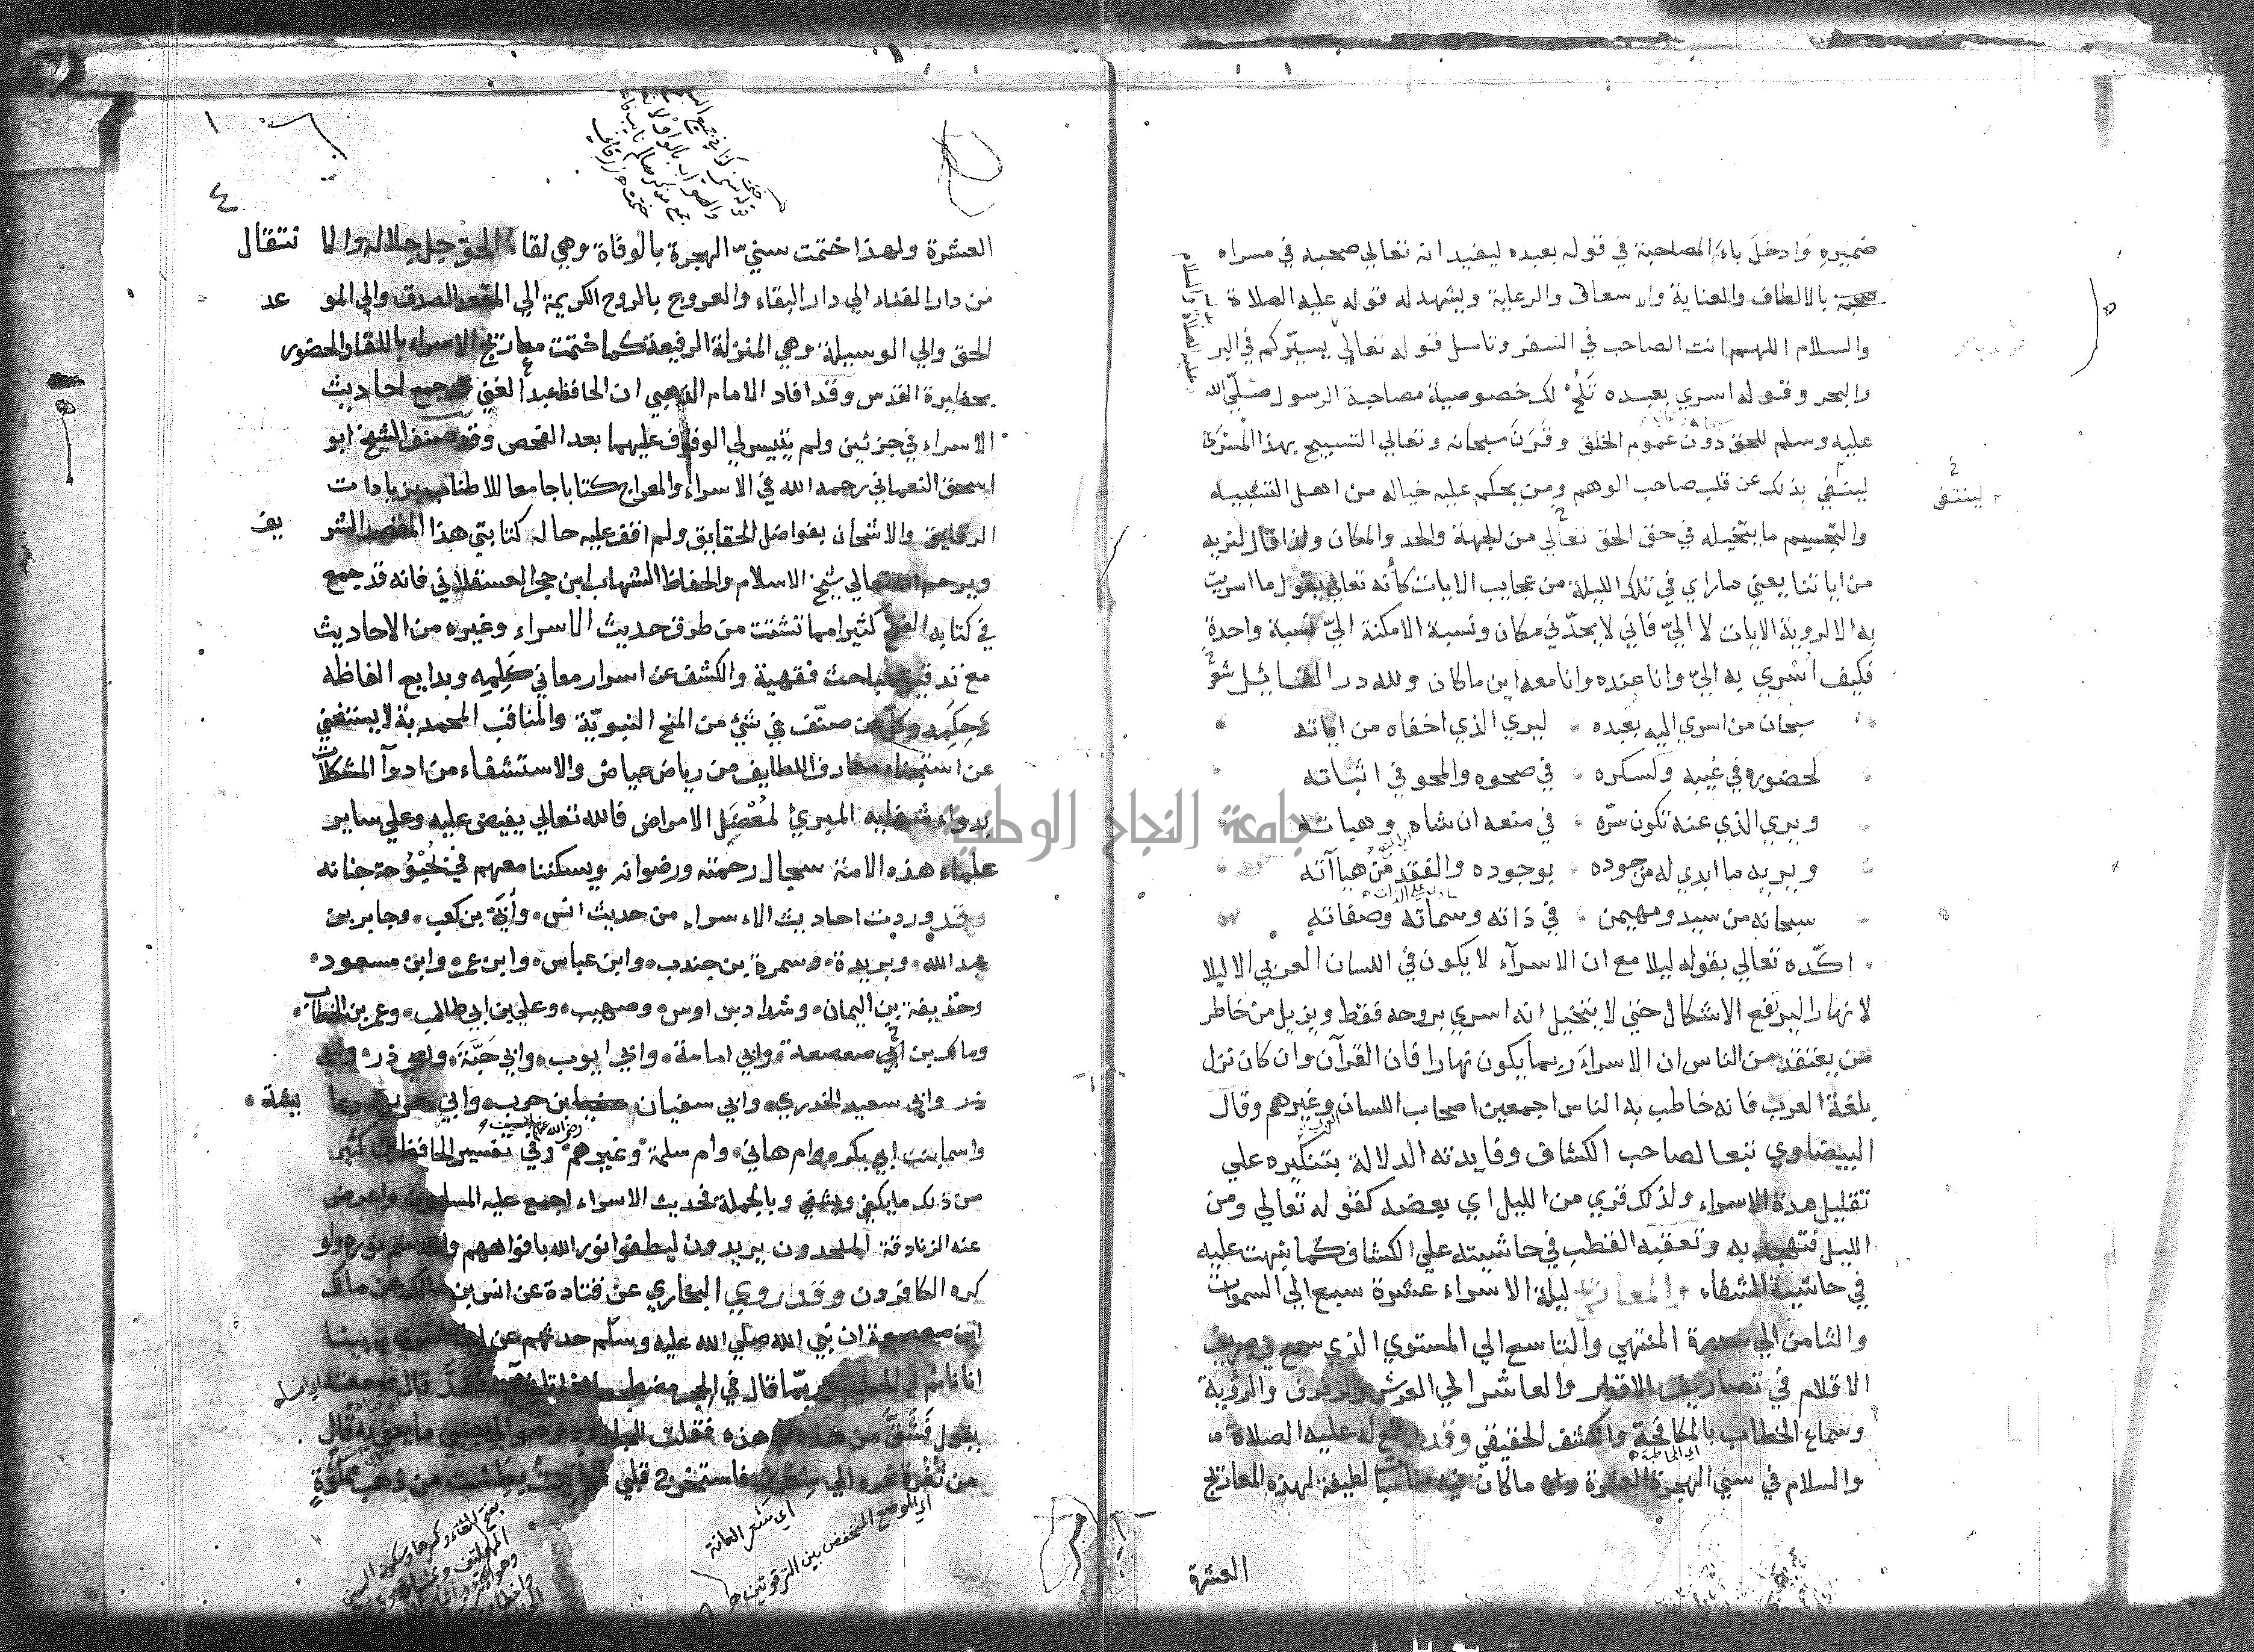 ضميره وادخل باء المصاحبة في قوله بعبده ليفيد انه تعالي صحبه في مسراه
صحبة بالالطاف والعناية والاسعاف والرعاية ويشهد له قوله عليه الصلاة
والسلام اللهم انت الصاحب في السفر وتامل قوله تعالي يسيركم في البر
والبحر وقوله اسري بعبده تلح لك خصوصية مصاحبة الرسول صلي الله
عليه وسلم للحق دون عموم الخلق وقرن سبحانه وتعالي التسبيح بهذا المسرى
لينفي بذلك عن قلب صاحب الوهم ومن يحكم عليه خياله من اهل التشبيه
والتجسيم ما يتخيله في حق الحق تعالي من الجهة والحد والمكان ولذا قال لنريه
من اياتنا يعني ما راي في تلك الليلة من عجايب الايات كأنه تعالي يقول ما اسريت
به الا لروية الايات لا اليّ فاني لا يحدّني مكان ونسبة الامكنة اليّ نسبة واحدة
فكيف اسري به اليّ وانا عنده وانا معه اين ما كان ولله در القائل شعر
سبحان من اسري اليه بعبده ليري الذي اخفاه من اياته
لحضوره في غيبه وكسكره في صحوه والمحو في اثباته
ويري الذي عنه تكون سرّه في منعه ان شاه وهباته
ويريه ما ابدي له من جوده بوجوده والفقد من هيآته
سبحانه من سيد ومهيمن في ذاته وسماته وصفاته
اكّده تعالي بقوله ليلا مع ان الاسرآء لا يكون في اللسان العربي الا ليلا
لا نهارا ليرتفع الاشكال حتي لا يتخيل انه اسري بروحه فقط ويزيل من خاطر
من يعتقد من الناس ان الاسراء ربما يكون نهارا فان القرآن وان كان نزل
بلغة العرب فانه خاطب به الناس اجمعين اصحاب اللسان وغيرهم وقال
البيضاوي تبعا لصاحب الكشاف وفايدته الدلالة بتنكيره علي
تقليل مدة الاسراء ولذلك قري من الليل اي بعضه كقوله تعالي ومن
الليل فتهجد به وتعقبه القطب في حاشيته علي الكشاف كما نبهت عليه
في حاشية الشفاء المعاريج ليلة الاسراء عشرة سبع الي السموات
والثامن الي سدرة المنتهي والتاسع الي المستوي الذي سمع فيه صريف
الاقلام في تصاريف الاقدار والعاشر الي العرش والرفرف والرؤية
وسماع الخطاب بالمكافحة والكشف الحقيقي وقد وقع له عليه الصلاة
والسلام في سني الهجرة العشرة ما كان فيه مناسبا لطيفة لهذه المعاريج
العشرة
لينتفى
٤
العشرة ولهذا ختمت سنيّ الهجرة بالوفاة وهي لقاء الحق جل جلاله والانتقال
من دار الفناء الي دار البقاء والعروج بالروح الكريمة الي المقعد الصدق والي الموعد
الحق والي الوسيلة وهي المنزلة الرفيعة كما ختمت معاريج الاسراء باللقاء والحضور
بحظيرة القدس وقد افاد الامام الذهبي ان الحافظ عبد الغني جمع احاديث
الاسراء في جزئين ولم يتيسر لي الوقوف عليهما بعد الفحص وقد صنف الشيخ ابو
اسحق النعماني رحمه الله في الاسراء والمعراج كتابا جامعا للاطناب بزيادات
الرقايق والاشحان بفواضل الحقايق ولم اقف عليه حاله كتابتي هذا المقصد الشريف
ويرحم الله تعالي شيخ الاسلام والحفاظ الشهاب ابن حجر العسقلاني فانه قد جمع
في كتابه الفتح كثيرا مما تشتت من طرق حديث الاسراء وغيره من الاحاديث
مع تدقيق مباحث فقهية والكشف عن اسرار معاني كلمه وبدايع الفاظه
وحكمه وكل من صنّف في شئ من المنح النبويّة والمناقب المحمدية لا يستغني
عن استجناء معارف اللطايف من رياض حياض والاستشفاء من ادوآ المشكلات
بدواء شفايه المبرئ لمعضل الامراض فالله تعالي يفيض عليه وعلي ساير
علماء هذه الامة سجال رحمته ورضوانه ويسكننا معهم في بحبوحة جنانه
وقد وردت احاديث الاسراء من حديث انس وأبيّ بن كعب وجابر بن
عبد الله وبريدة وسمرة بن جندب وابن عباس وابن عمر وابن مسعود
وحذيفة بن اليمان وشداد بن اوس وصهيب وعلي بن ابي طالب وعمر بن الخطاب
ومالك بن ابي صعصعة وابي امامة وابي ايوب وابي حبّة وابي ذر وابي
سعيد الخدري وابي سفيان بن حرب وابي هريرة وعايشة
واسما بنت ابي بكر وام هاني وام سلمة وغيرهم وفي تفسير الحافظ بن كثير
من ذلك ما يكفي ويشفي وبالجملة فحديث الاسراء اجمع عليه المسلمون واعرض
عنه الزنادقة الملحدون يريدون ليطفئوا نور الله بافواههم والله متم نوره ولو
كره الكافرون وقد روي البخاري عن قتادة عن انس بن مالك عن مالك
ابن صعصعة ان نبي الله صلي الله عليه وسلم حدثهم عن ليلة اسري به بينا
انا نائم في الحطيم وربّما قال في الحجر مضطجعا اذ اتاني آت فقدّ قال وسمعته
يقول فشقّ من هذه الي هذه فقلت للجارود وهو الي جنبي ما يعني به قال
من ثغرة نحره الي شعرته فاستخرج قلبي ثم أتيت بطست من ذهب مملوّة
اي شعر العانة
اي الموضع المنخفض بين الترقوتين
جامعة النجاح الوطنية